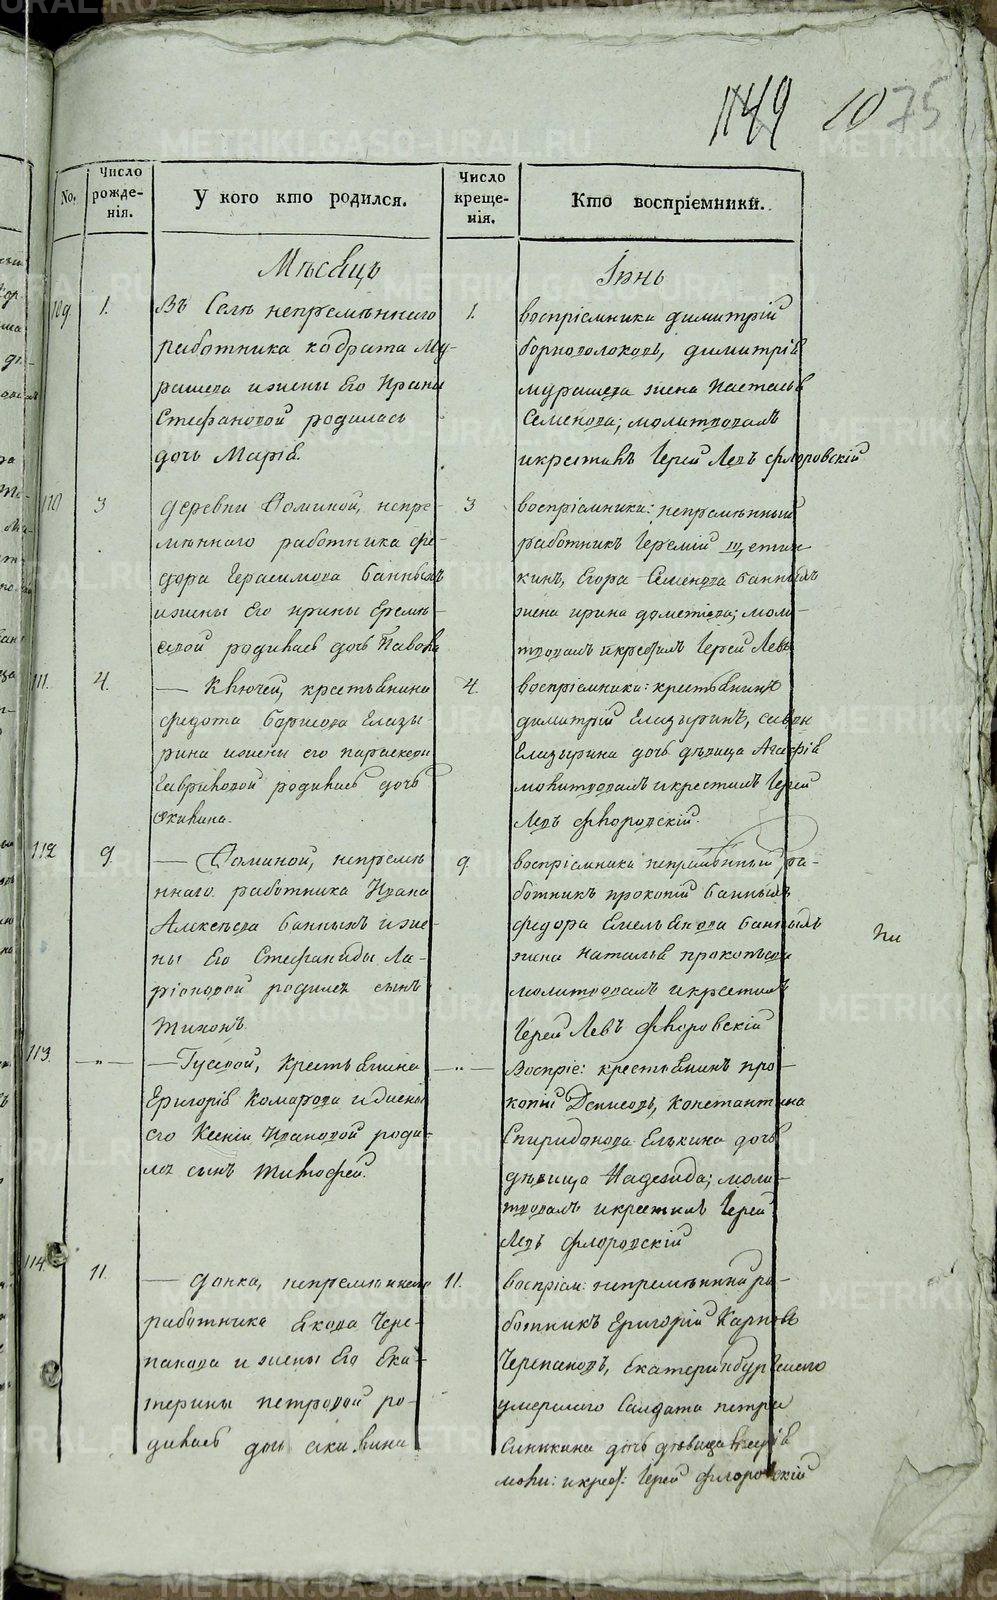 1149 1075
No.
Число рожде-нія.
У кого кто родился.
Число креще-нія.
Кто воспріемники.
Мѣсяцъ
Іюнь
109 1.
Въ Селѣ непремѣннаго
работника кодрата Му-
рашева и жены Его Ирины
Стефановой родилась
дочь Марія.
1.
воспріемники димитрій
димитрія
мурашева жена Наталья
Семенова; молитвовалъ
и крестилъ Іерей Левъ флоровскій
110 3
деревни Фоминой, непре-
мѣннаго работника фе-
дора Герасимова банныхъ
и жены Его ирины Еремѣ-
евой родилась дочь Павла
3
воспріемники: непремѣнный
работникъ Іеремій
Егора Семенова банныхъ
жена ирина дометіева; моли-
твовалъ и крестилъ Іерей Левъ
111. 4.
— Ключей, крестьянина
федота борисова Елазы
рина и жены его параскеви
Гавриловой родилась дочь
Акилина.
4.
воспріемники: крестьянинъ
димитрій Елазыринъ, савы
Елазырина дочь дѣвица Агафія
молитвовалъ и крестилъ Іерей
Левъ флоровскій.
112 9
— Фоминой, непремѣ
ннаго работника Ивана
Алексѣева банныхъ и же-
ны Его Стефаниды Ла-
ріоновой родился сынъ
Тихонъ.
9.
воспріемники непремѣнный ра-
ботникъ прокопій банныхъ
федора Емельянова банныхъ
жена наталья прокопьева
молитвовалъ и крестилъ
Іерей Левъ флоровскій
113. — „ —
— Гусевой, крестьянина
Григорія Комарова и жены
его Ксеніи Ивановой роди-
лся сынъ Тимофей.
— „ —
Воспріе: крестьянинъ про-
копій Денисовъ, константина
Спиридонова Елькина дочь
дѣвица Надежда; моли-
твовалъ и крестилъ Іерей
Левъ флоровскій
114. 11.
— донка, непремѣннаго
работника Якова Чере-
панова и жены Его Ека-
терины петровой ро-
дилась дочь акилина
11.
Воспріем: непремѣнный ра-
ботникъ Григорій Карповъ
Черепановъ, Екатеринбургскаго
умершаго Салдата петра
дочь дѣвица
моли: и крест: Іерей флоровскій